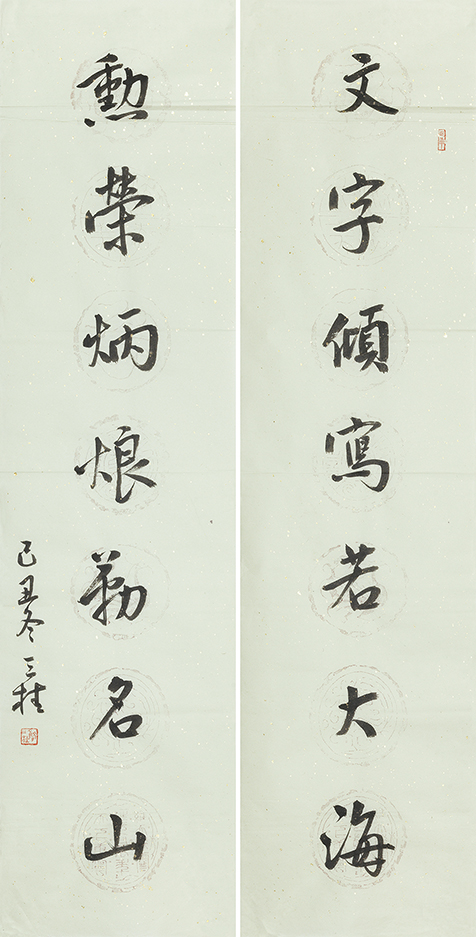 文字傾寫若大海
勲榮炳烺勒名山
己丑冬 三桂